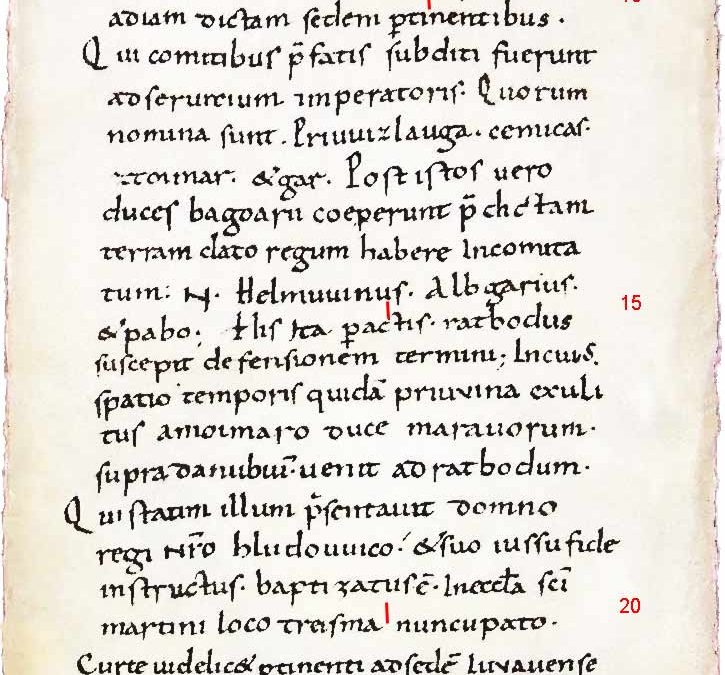 adiam dictam sedem ꝑtinentibus .
Qui comitibus p̄fatis subditi fuerunt
ad seruicium imperatoris. Quorum
nomina sunt. Priuuizlauga. cemicas.
ztoimar. &gar. Post istos uero
duces bagoarii coeperunt p̄dictam
terram dato regum habere Incomita
tum: N. Helmuuinus. Albgarius.
15
&pabo; His Ita peractis. ratbodus
suscepit defensionem termini; Incuius
spatio temporis quidā priuuina exuli
tus amoimaro duce marauorum.
supra danubium. uenit ad ratbodum.
Qui statim illum p̄sentauit domno
regi nr̄o hludouuico. &suo iussu fide
instructus. baptizatus ē. In eccl̄a sc̄i
20
martini loco treisma nuncupato.
Curte uidelic& ꝑtinenti ad sedē Iuuauense